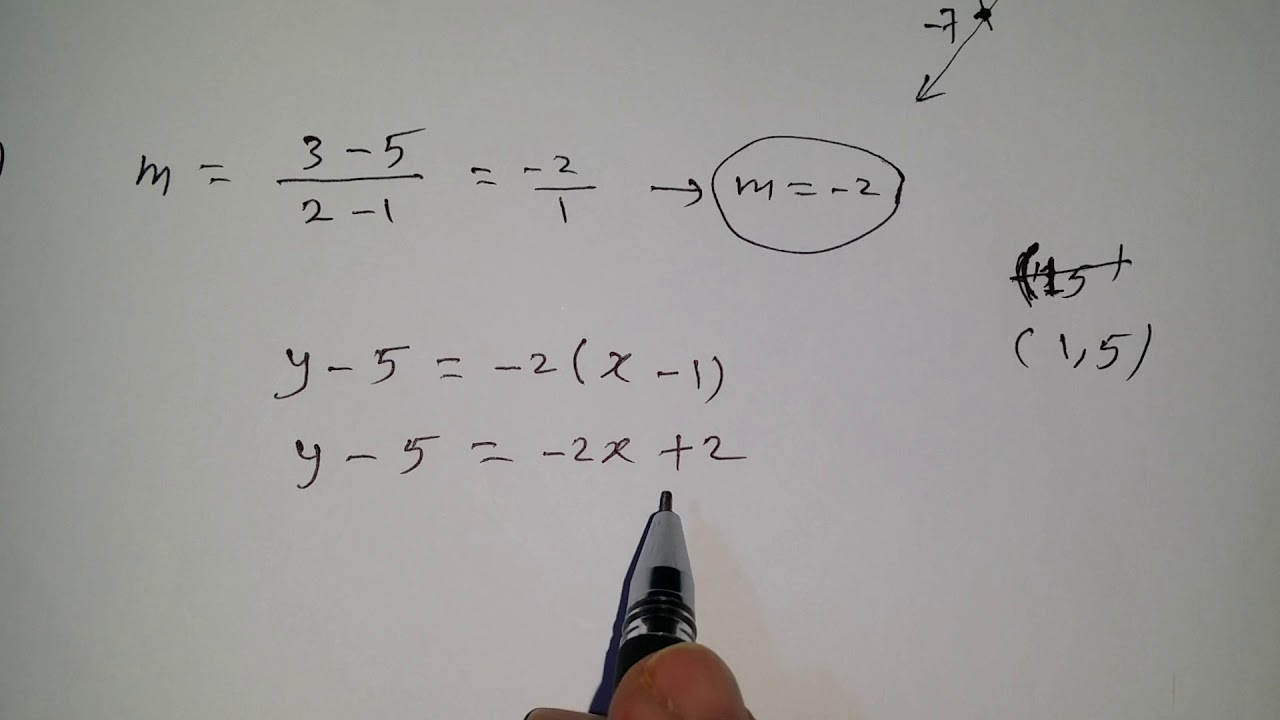 -7
)
m = (3 - 5)/(2 - 1) = -2/1 → m = -2
(1,5)
y - 5 = -2(x - 1)
y - 5 = -2x + 2